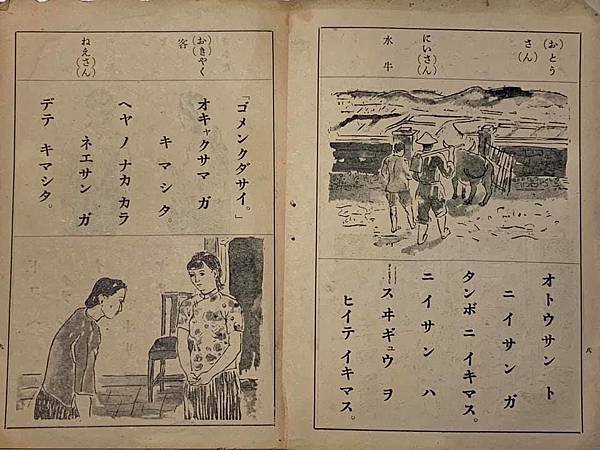 (お)とう
(さん)
にい(さん)
水牛
オトウサン ト
ニイサン ガ
タンボ ニ イキマス。
ニイサン ハ
スヰギュウ ヲ
ヒイテ イキマス。
八
(お)きやく
客
ねえ(さん)
「ゴメンクダサイ。」
オキャクサマ ガ
キマシタ。
ヘヤ ノ ナカ カラ
ネエサン ガ
デテ キマシタ。